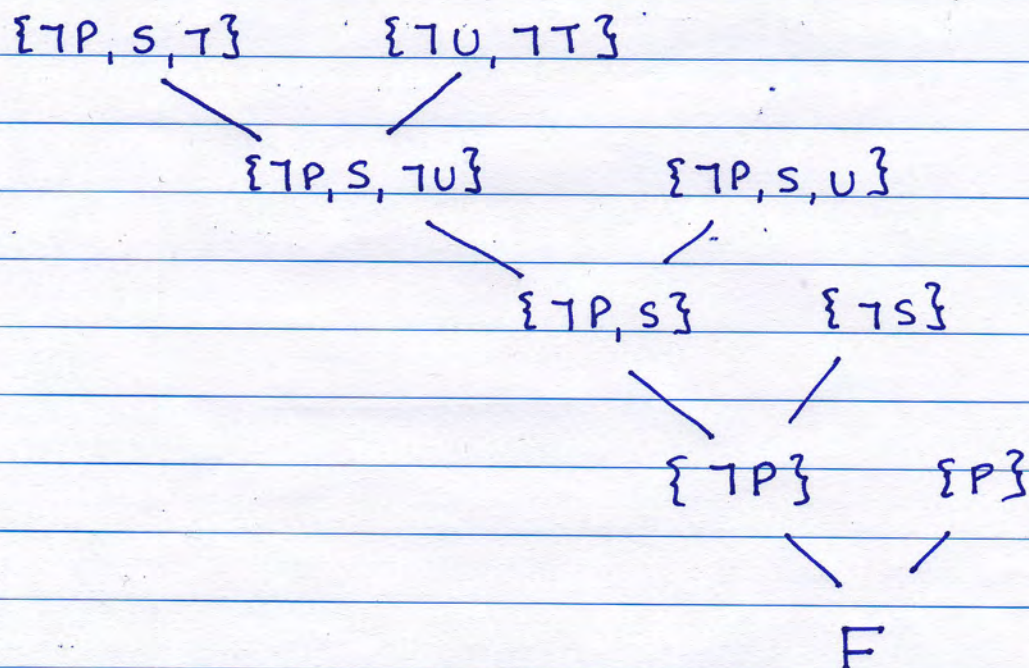 {¬P, S, T} {¬U, ¬T}
{¬P, S, ¬U} {¬P, S, U}
{¬P, S} {¬S}
{¬P} {P}
F